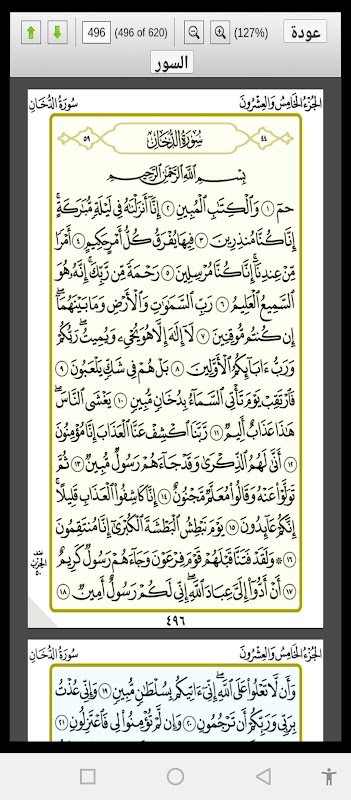 496 (496 of 620) (127%) عودة
السور
سُورَةُ الدُّخَانِ الجُزْءُ الخَامِسُ وَالعِشْرُونَ
٤٤ سُورَةُ الدُّخَانِ ٥٩
بِسْمِ اللَّهِ الرَّحْمَٰنِ الرَّحِيمِ
حمٓ ١ وَٱلْكِتَٰبِ ٱلْمُبِينِ ٢ إِنَّآ أَنزَلْنَٰهُ فِى لَيْلَةٍ مُّبَٰرَكَةٍ ۚ
إِنَّا كُنَّا مُنذِرِينَ ٣ فِيهَا يُفْرَقُ كُلُّ أَمْرٍ حَكِيمٍ ٤ أَمْرًا
مِّنْ عِندِنَآ ۚ إِنَّا كُنَّا مُرْسِلِينَ ٥ رَحْمَةً مِّن رَّبِّكَ ۚ إِنَّهُۥ هُوَ
ٱلسَّمِيعُ ٱلْعَلِيمُ ٦ رَبِّ ٱلسَّمَٰوَٰتِ وَٱلْأَرْضِ وَمَا بَيْنَهُمَآ ۖ
إِن كُنتُم مُّوقِنِينَ ٧ لَآ إِلَٰهَ إِلَّا هُوَ يُحْىِۦ وَيُمِيتُ ۖ رَبُّكُمْ
وَرَبُّ ءَابَآئِكُمُ ٱلْأَوَّلِينَ ٨ بَلْ هُمْ فِى شَكٍّ يَلْعَبُونَ ٩
فَٱرْتَقِبْ يَوْمَ تَأْتِى ٱلسَّمَآءُ بِدُخَانٍ مُّبِينٍ ١٠ يَغْشَى ٱلنَّاسَ ۖ
هَٰذَا عَذَابٌ أَلِيمٌ ١١ رَّبَّنَا ٱكْشِفْ عَنَّا ٱلْعَذَابَ إِنَّا مُؤْمِنُونَ
١٢ أَنَّىٰ لَهُمُ ٱلذِّكْرَىٰ وَقَدْ جَآءَهُمْ رَسُولٌ مُّبِينٌ ١٣ ثُمَّ
تَوَلَّوْا۟ عَنْهُ وَقَالُوا۟ مُعَلَّمٌ مَّجْنُونٌ ١٤ إِنَّا كَاشِفُوا۟ ٱلْعَذَابِ قَلِيلًا ۚ
إِنَّكُمْ عَآئِدُونَ ١٥ يَوْمَ نَبْطِشُ ٱلْبَطْشَةَ ٱلْكُبْرَىٰٓ إِنَّا مُنتَقِمُونَ
١٦ ۞ وَلَقَدْ فَتَنَّا قَبْلَهُمْ قَوْمَ فِرْعَوْنَ وَجَآءَهُمْ رَسُولٌ كَرِيمٌ
نصف
الحزب
٥٠
١٧ أَنْ أَدُّوٓا۟ إِلَىَّ عِبَادَ ٱللَّهِ ۖ إِنِّى لَكُمْ رَسُولٌ أَمِينٌ ١٨
٤٩٦
سُورَةُ الدُّخَانِ الجُزْءُ الخَامِسُ وَالعِشْرُونَ
وَأَن لَّا تَعْلُوا۟ عَلَى ٱللَّهِ ۖ إِنِّىٓ ءَاتِيكُم بِسُلْطَٰنٍ مُّبِينٍ ١٩ وَإِنِّى عُذْتُ
بِرَبِّى وَرَبِّكُمْ أَن تَرْجُمُونِ ٢٠ وَإِن لَّمْ تُؤْمِنُوا۟ لِى فَٱعْتَزِلُونِ ٢١